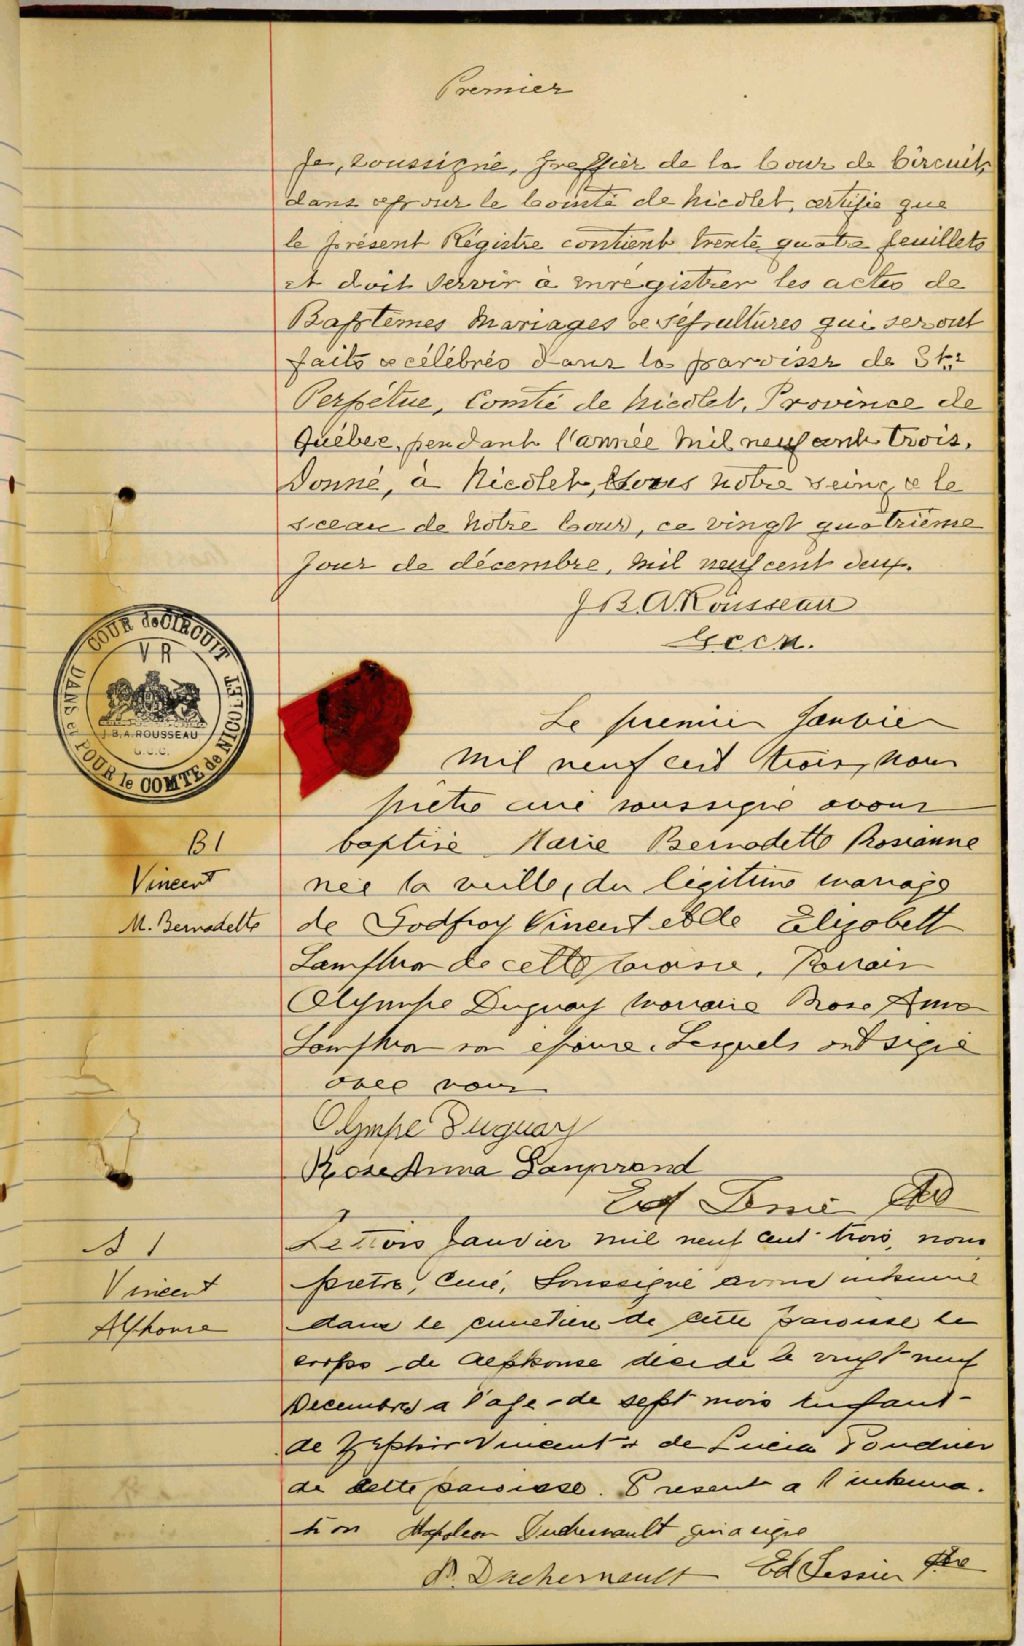 Premier
Je, soussigné, Greffier de la Cour de Circuit,
dans & pour le Comté de Nicolet, certifie que
le présent Régistre contient trente quatre feuillets
et doit servir à enrégistrer les actes de
Baptêmes Mariages & Sépultures qui seront
faits & célébrés dans la paroisse de Ste
Perpétue, Comté de Nicolet, Province de
Québec, pendant l'année mil neuf cent trois.
Donné, à Nicolet, sous notre seing & le
sceau de notre Cour, ce vingt quatrième
jour de décembre, mil neuf cent deux.
J B. A. Rousseau
G.C.C.N.
COUR de CIRCUIT
DANS et POUR le COMTE de NICOLET
V R
J.B.A. ROUSSEAU
G.C.C.
Le premier Janvier
mil neuf cent trois, nous
prêtre curé soussigné avons
B 1
baptisé Marie Bernadette Rosianne
Vincent
née la veille, du légitime mariage
M. Bernadette
de Godfroy Vincent et de Elizabeth
de cette paroisse. Parrain
Olympe Duguay marraine Rose Anna
son épouse. Lesquels ont signé
avec nous
Olympe Duguay
Rose Anna Lanprond
Ed Tessier Ptre
S 1
Le trois Janvier mil neuf cent trois, nous
Vincent
pretre, Curé, Soussigné avons inhumé
Alphonse
dans le cimetière de cette paroisse le
corps de Alphonse décédé le vingt neuf
Decembre a l'age de sept mois Enfant
de Zephir Vincent & de Lucia Poudrier
de cette paroisse. Present a l'inhuma-
tion Napoleon Duchesnault qui a signé
N. Duchesneault Ed Tessier Ptre